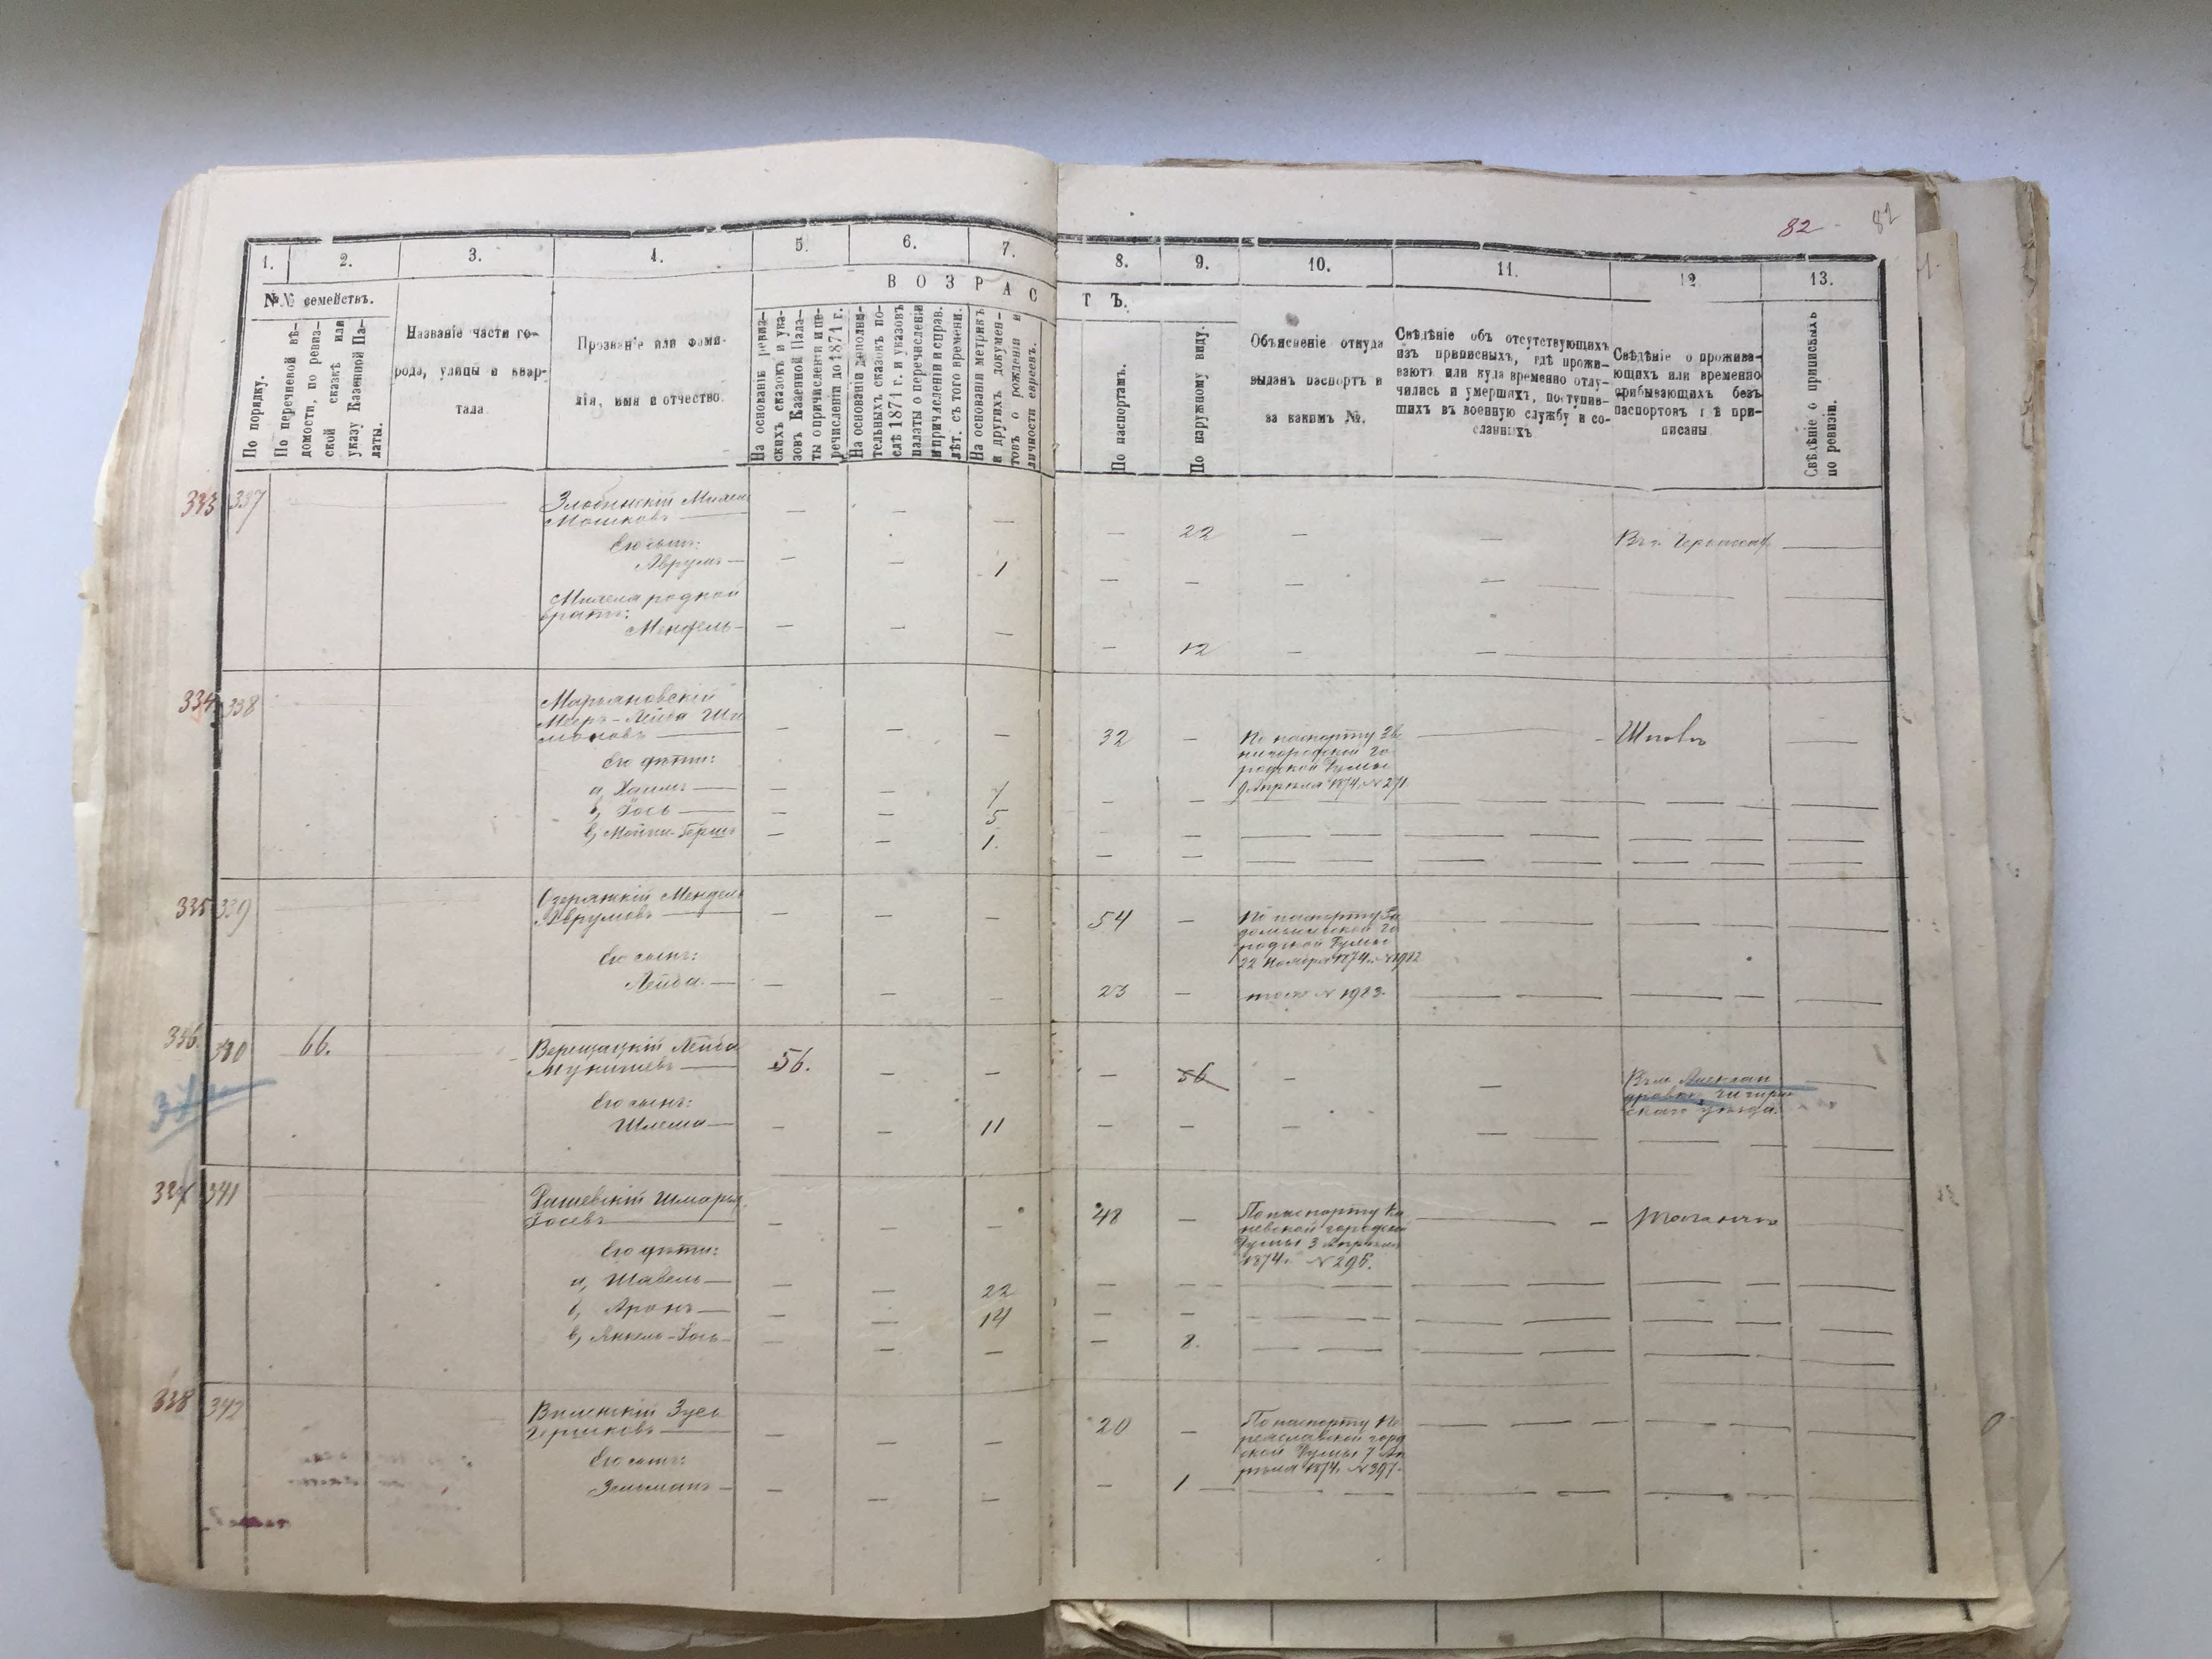 82
1. 2. 3. 4. 5. 6. 7. 8. 9. 10. 11. 12 13.
№№ семействъ.
ВОЗРАСТЪ.
По порядку.
По перечневой вѣ-
домости, по ревиз-
ской сказкѣ или
указу Казенной Па-
латы.
Названіе части го-
рода, улицы и квар-
тала
Прозваніе или фами-
лія, имя и отчество.
На основаніи ревиз-
скихъ сказокъ и ука-
зовъ Казенной Пала-
ты о причисленіи и пе-
речисленіи до 1871 г.
На основаніи дополни-
тельныхъ сказокъ по-
слѣ 1871 г. и указовъ
палаты о перечисленіи
и причисленіи и справ.
лѣт. съ того времени.
На основаніи метрикъ
и другихъ докумен-
товъ о рожденіи и
личности евреевъ.
По паспортамъ.
По наружному виду.
Объясненіе откуда
выданъ паспортъ и
за какимъ №.
Свѣдѣніе объ отсутствующихъ
изъ приписныхъ, гдѣ прожи-
ваютъ или куда временно отлу-
чились и умершихъ, поступив-
шихъ въ военную службу и со-
сланныхъ
Свѣдѣніе о прожива-
ющихъ или временно
прибывающихъ безъ
паспортовъ гдѣ при-
писаны.
Свѣдѣніе о приписныхъ
по ревизіи.
333 337 Злобинскій
Мошковъ — 22
Его сынъ:
Аврумъ — 1
родной
братъ:
Мендель — 12
334 338 Марьяновскій
Мееръ-Лейба Ши
моновъ — 32 По паспорту Зве
нигородской го
родской Думы
9 Апрѣля 1874 № 271
Его дѣти:
а, Хаимъ — 7
б, Іось — 5
в, Мойши-Герш 1.
335 339 Озерянскій Мендель
Аврумовъ — 54 По паспорту Ра
домысльской го
родской Думы
22 Ноября 1874 г. № 1982
Его сынъ:
Лейба — 23 тоже № 1983.
336. 340 66. Верещацкій Лейба
56. 56 Въ м. Александ
ровкѣ, Чигирин
скаго уѣзда.
Его сынъ:
Шлема — 11
337 341 Рашевскій Шмарья
Іосевъ — 48 По паспорту Ка
невской городской
Думы 3 Апрѣля
1874 г. № 295.
Таганча
Его дѣти:
а, Шавель — 22
б, Аронъ — 14
в, Янкель-Іось — 8.
338 342 Виленскій Зусь
Гершковъ — 20 По паспорту Пе
реяславской город
ской Думы 7 Ап
рѣля 1874 г. № 397.
Его сынъ:
1